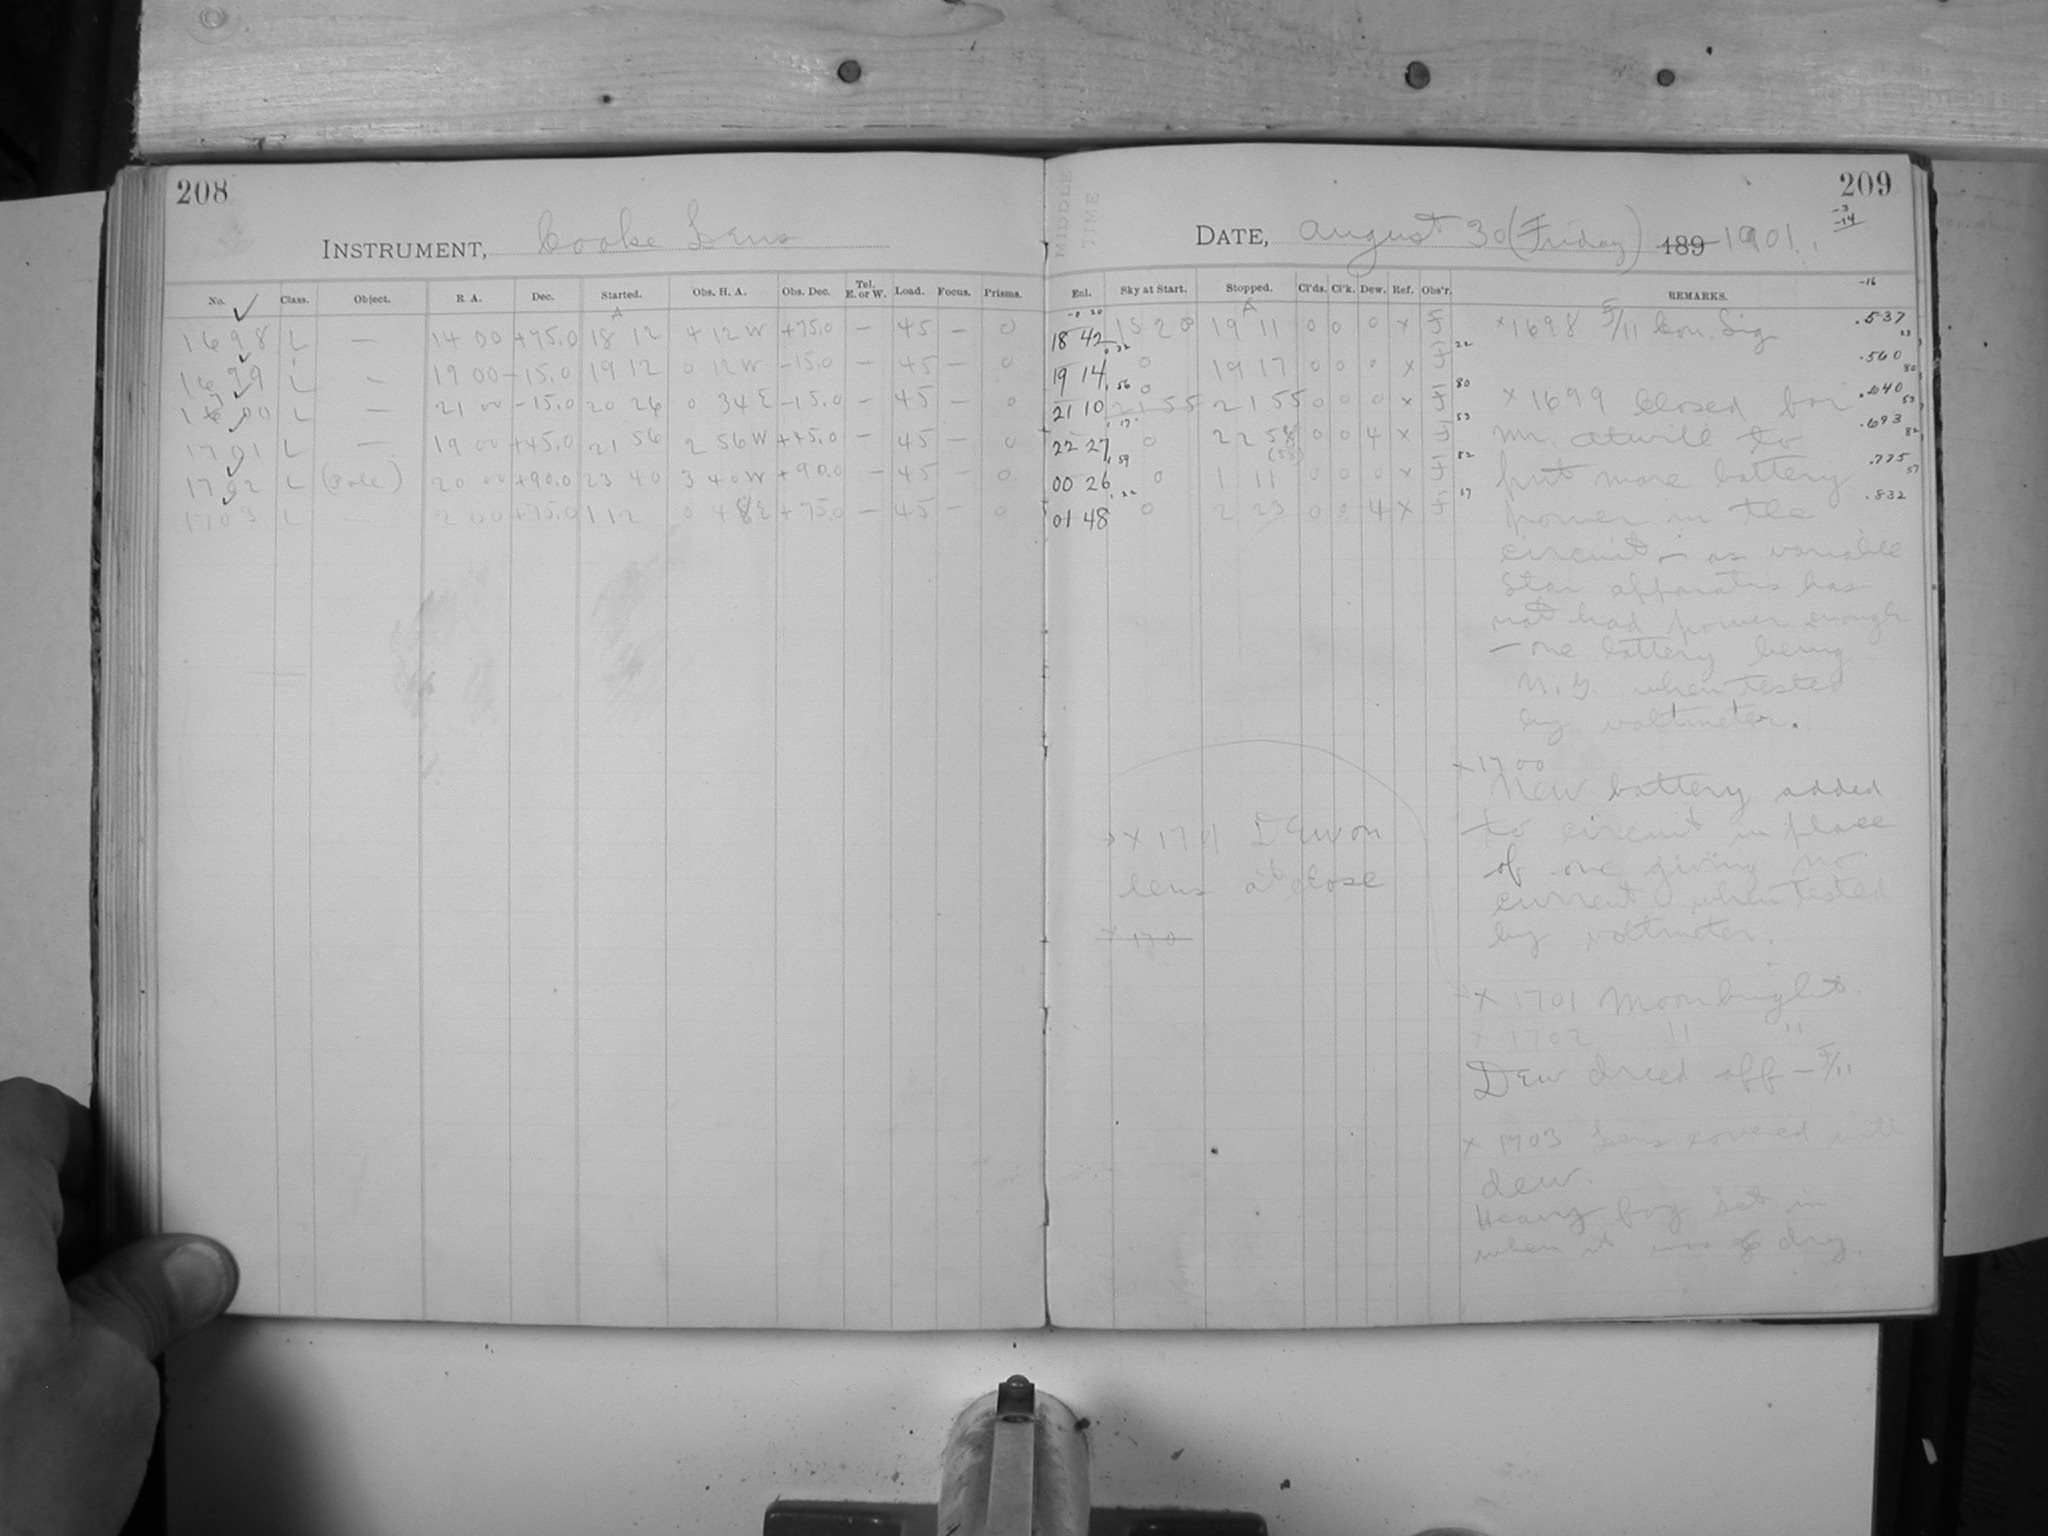 208
INSTRUMENT, Cooke Lens
No. Class. Object. R A. Dec. Started. Obs. H. A. Obs. Dec. Tel. E. or W. Load. Focus. Prisms.
1698 L — 14 00 +75.0 18 12 4 12 W +75.0 — 45 — 0
1699 L — 19 00 -15.0 19 12 0 12 W -15.0 — 45 — 0
1700 L — 21 00 -15.0 20 26 0 34 E -15.0 — 45 — 0
1701 L — 19 00 +45.0 21 56 2 56 W +45.0 — 45 — 0
1702 L (Pole) 20 00 +90.0 23 40 3 40 W +90.0 — 45 — 0
1703 L — 2 00 +75.0 1 12 0 48 E +75.0 — 45 — 0
209
MIDDLE TIME
DATE, August 30 (Friday) 189 1901.
-3
-14
Eol. Sky at Start. Stopped. Cl'ds. Cl'k. Dew. Ref. Obs'r. REMARKS.
-16
18 42 19 11 0 0 0 x .537
19 14 0 19 17 0 0 0 x .560
21 10 0 21 55 21 55 0 0 0 x
22 27 0 22 58 0 0 4 x .693
00 26 0 1 11 0 0 0 x .775
01 48 0 2 23 0 0 4 x .832
x 1698 F/11 Con. Sig
x 1699 Closed for
Mr. Atwill to
put more battery
power in the
circuit — as variable
star apparatus has
not had power enough
— one battery being
N. G. when tested
by voltmeter.
x 1700
New battery added
to circuit in place
of one giving no
current when tested
by voltmeter.
→ x 1701 Dew on
lens at close
x 170
x 1701 Moon bright.
x 1702 " "
Dew dried off — F/11
x 1703 Lens covered with
dew.
Heavy fog set in
when it was dry.